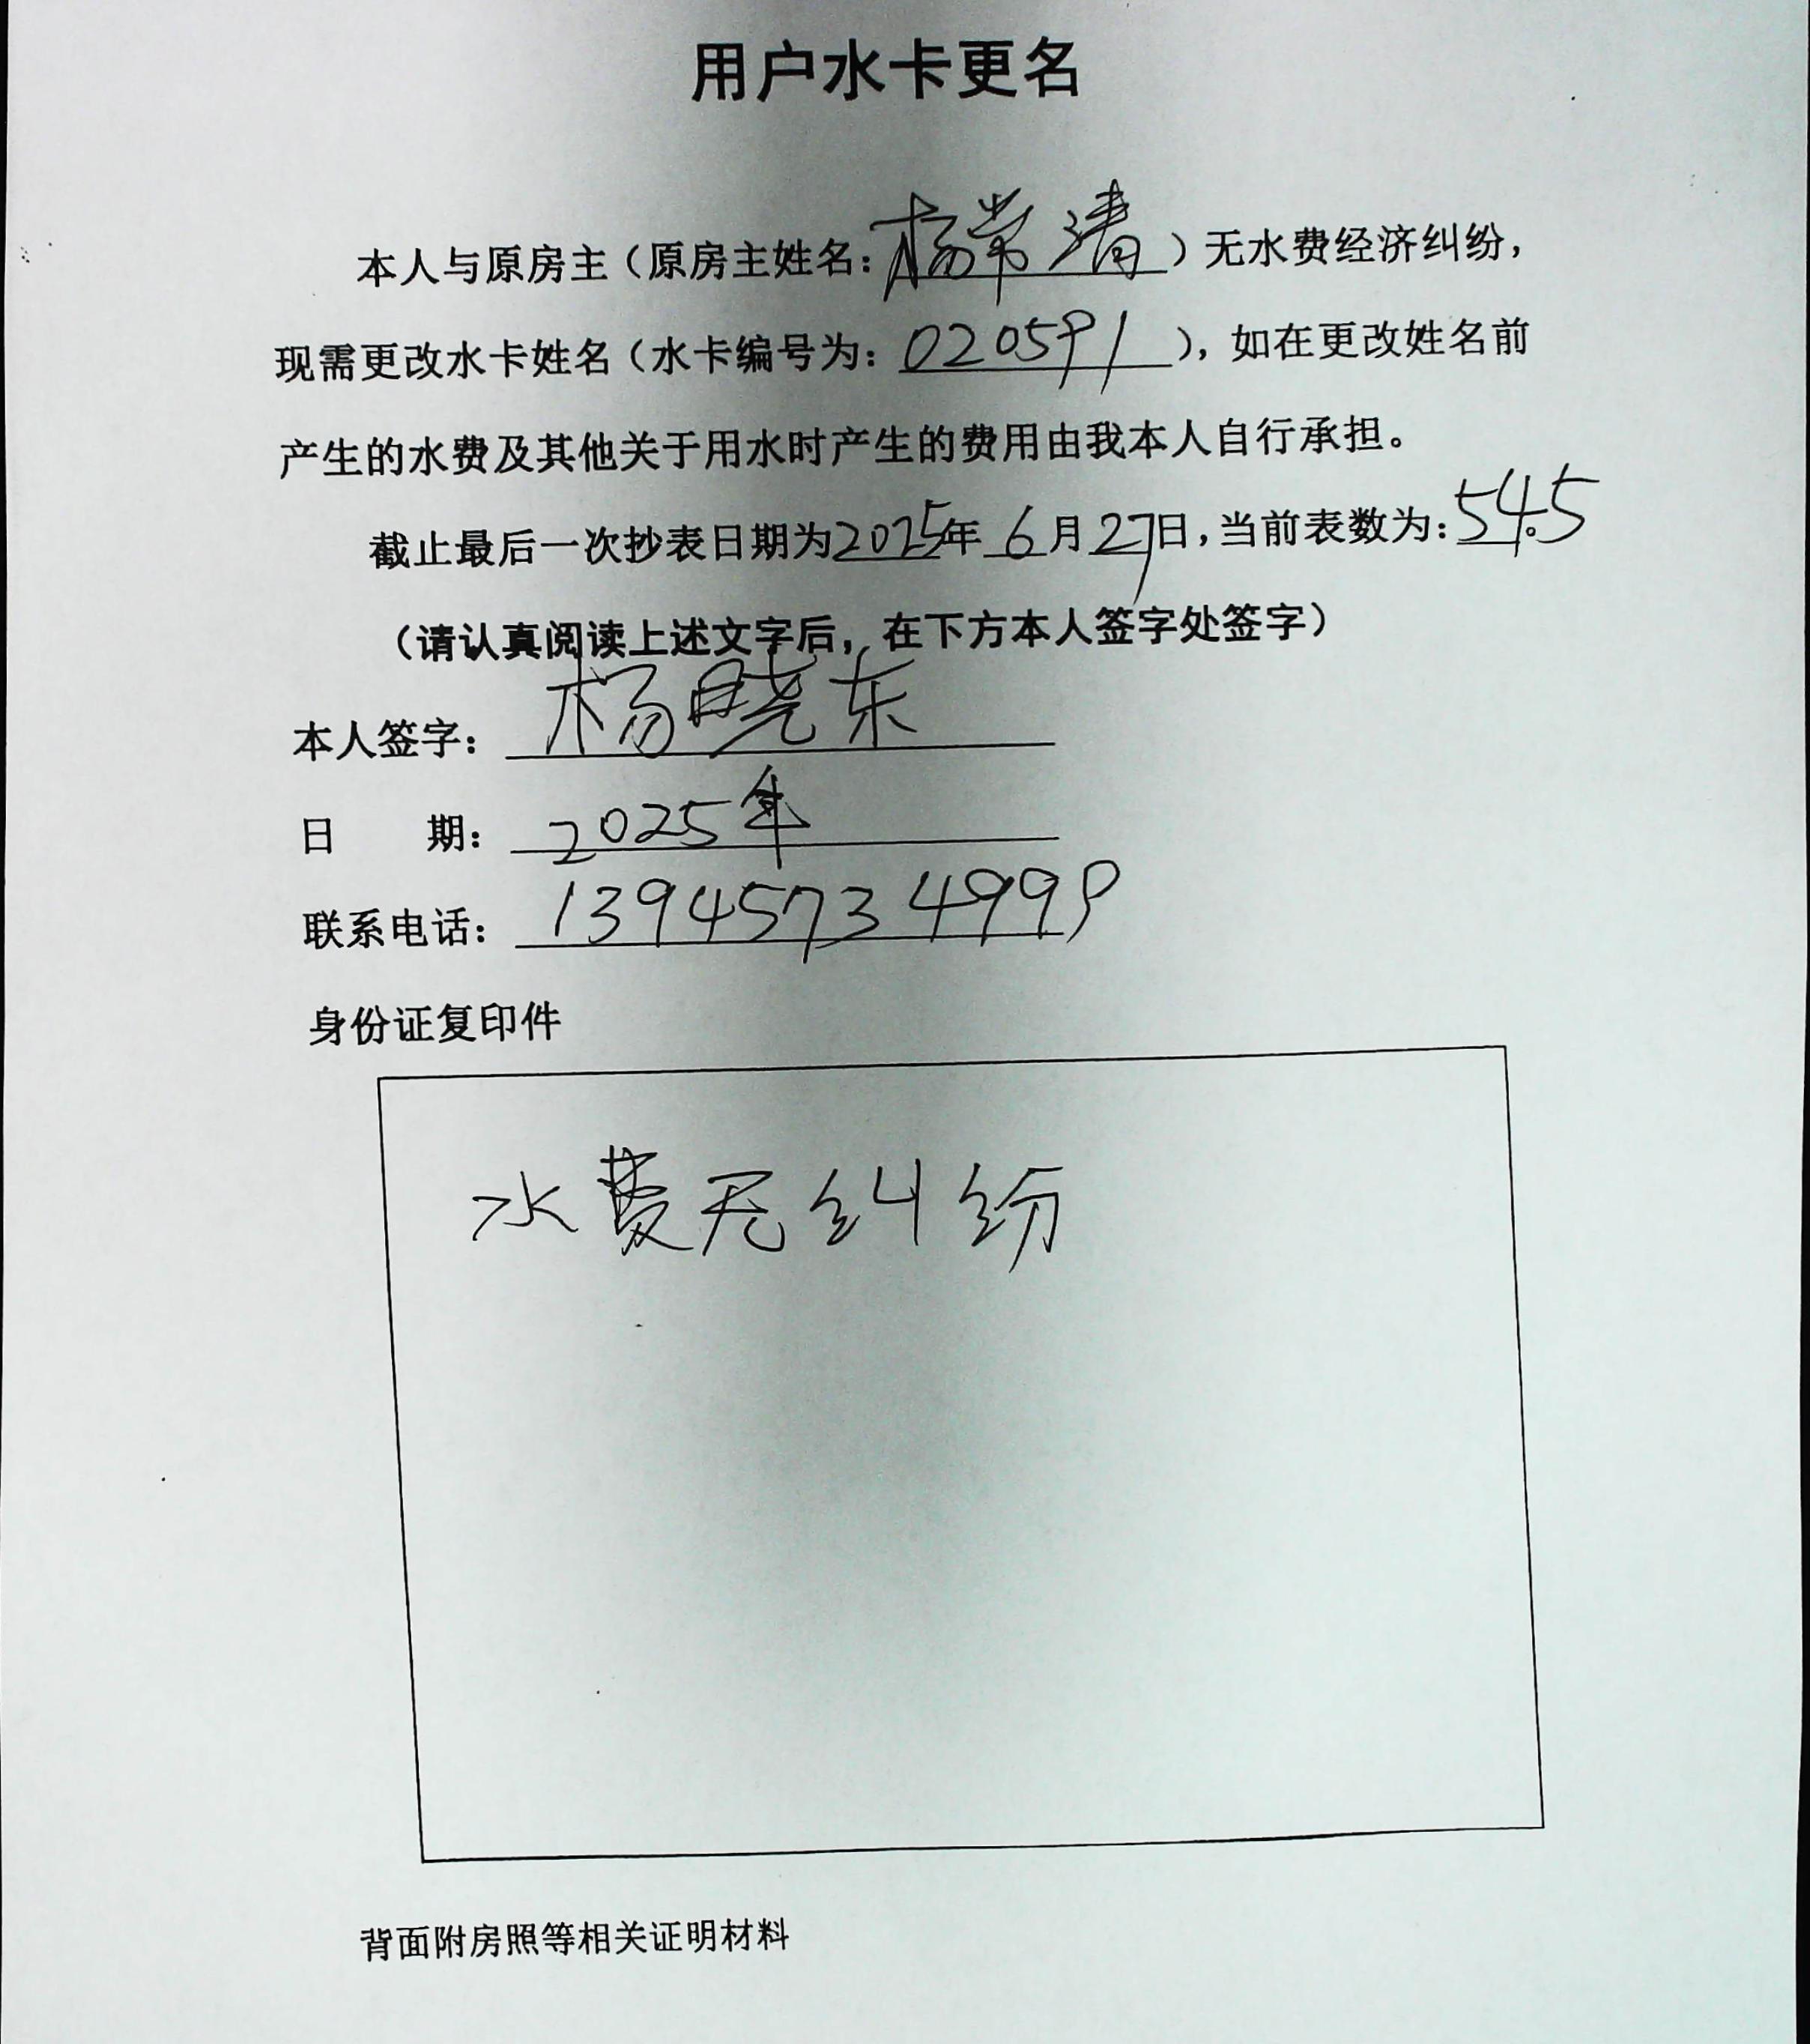 用户水卡更名
本人与原房主（原房主姓名：杨常清）无水费经济纠纷，
现需更改水卡姓名（水卡编号为：020591），如在更改姓名前
产生的水费及其他关于用水时产生的费用由我本人自行承担。
截止最后一次抄表日期为2025年6月27日，当前表数为：54.5
（请认真阅读上述文字后，在下方本人签字处签字）
本人签字：杨晓东
日 期：2025年
联系电话：13945734999
身份证复印件
水费无纠纷
背面附房照等相关证明材料